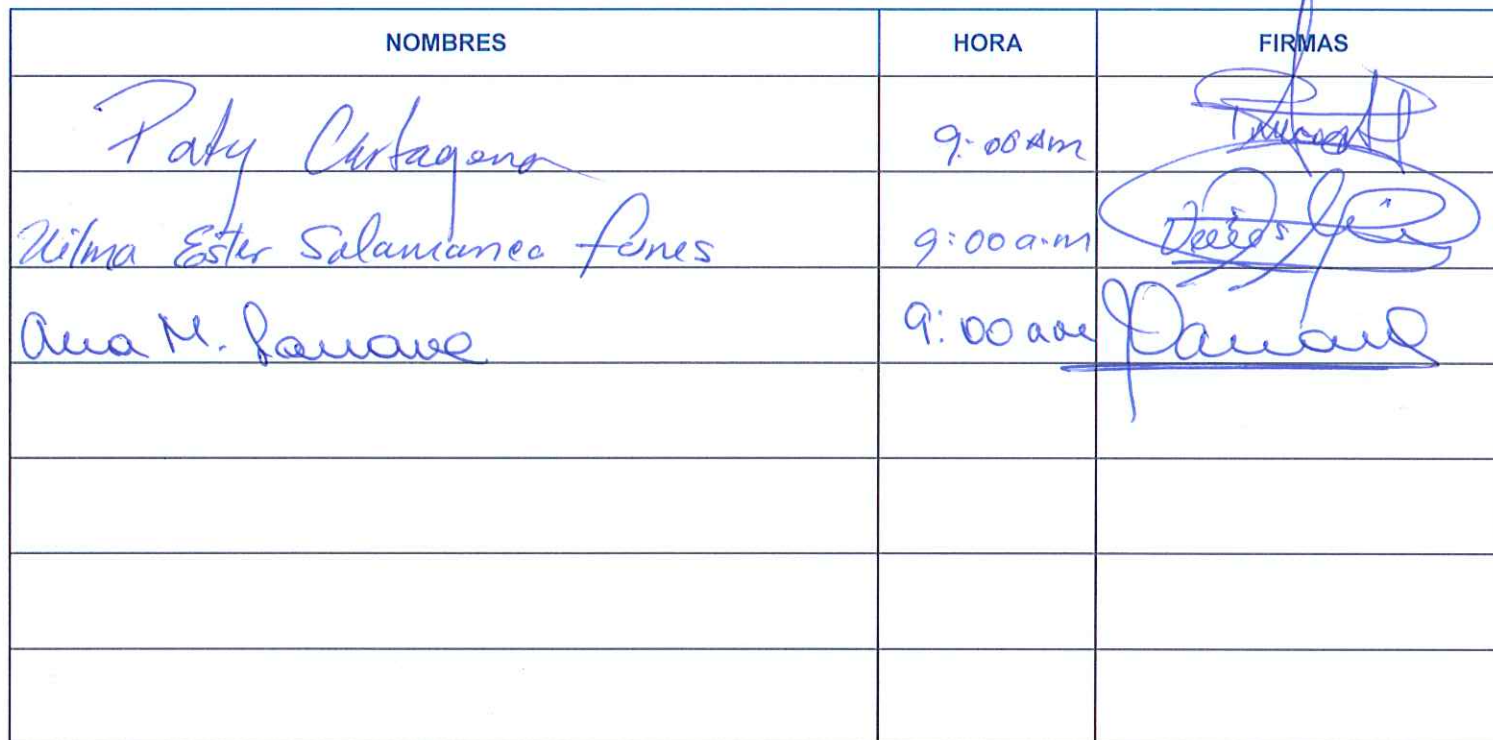 NOMBRES HORA FIRMAS
Paty Cartagena 9:00 AM
Vilma Ester Salamanca funes 9:00 a.m
Ana M. 9:00 am